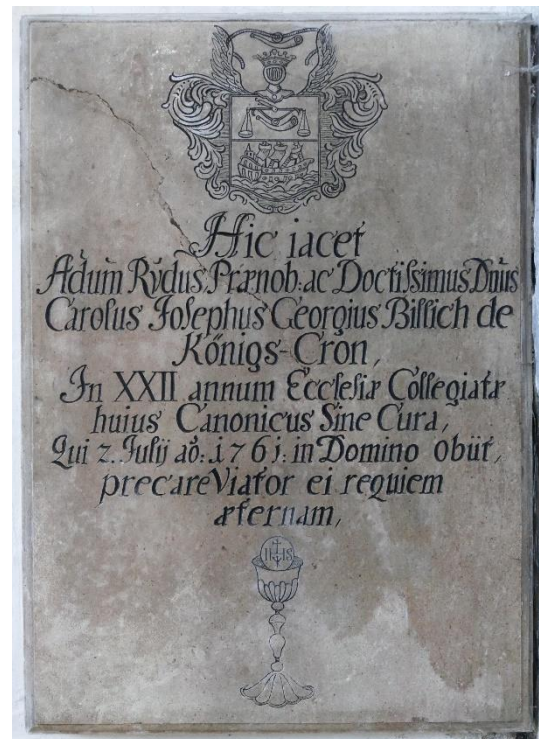 Hic iacet
Adum Rvdus Prænob: ac Doctiſsimus Dnus
Carolus Joſephus Georgius Billich de
Königs-Cron,
In XXII annum Eccleſiæ Collegiatæ
huius Canonicus Sine Cura,
Qui 2. Julij aõ: 1761: in Domino obiit,
precare Viator ei requiem
æternam,
IHS